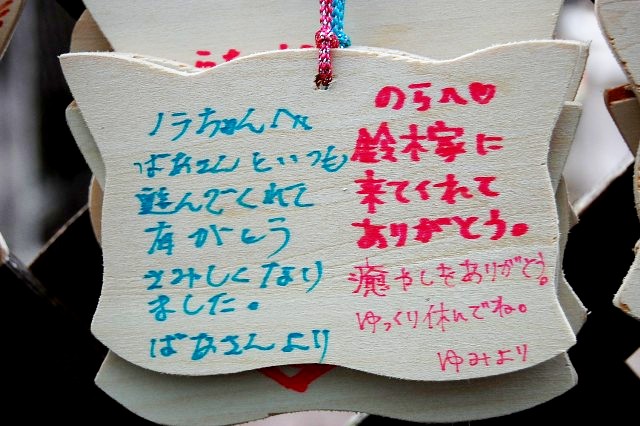 のらへ♡
鈴木家に
来てくれて
ありがとう。
癒やしをありがとう。
ゆっくり休んでね。
ゆみより
ノラちゃんへ
ばあさんといつも
遊んでくれて
有がとう
さみしくなり
ました。
ばあさんより